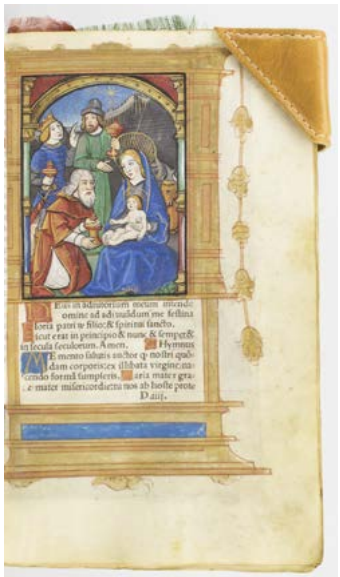 Deus in adiutorium meum intende
omine ad adiuuandum me festina
loria patri & filio: & spiritui sancto.
icut erat in principio & nunc & semper &
in secula seculorum. Amen. Hymnus
Memento salutis auctor q nostri quõ
dam corporis: ex illibata virgine: na
cendo formã sumpseris. Maria mater gra
e mater misericordie tu nos ab hoste prote
D iiij.